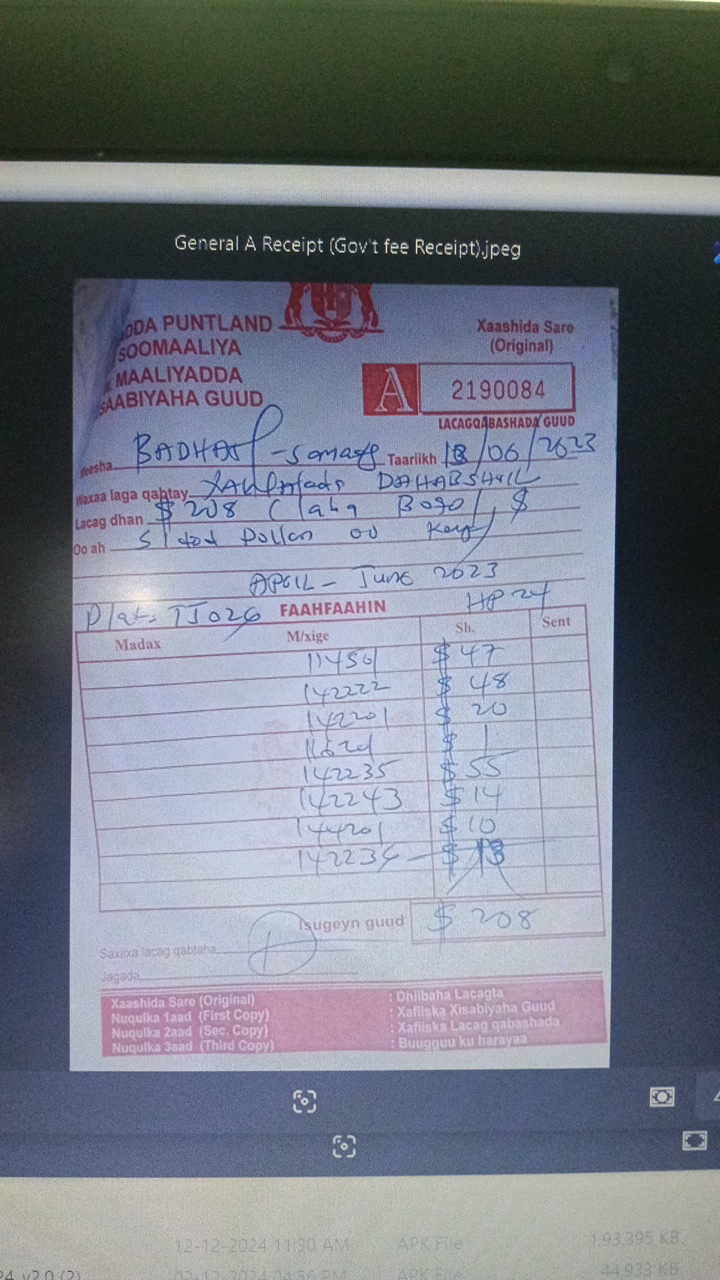 General A Receipt (Gov't fee Receipt).jpeg
DDA PUNTLAND
SOOMAALIYA
MAALIYADDA
SAABIYAHA GUUD
Xaashida Sare
(Original)
A 2190084
LACAGQABASHADA GUUD
eesha Taariikh 18/06/2023
Waxaa laga qabtay DAHABSHIIL
Lacag dhan $ 208 Boqo $
Oo ah Dollar oo
APRIL - June 2023
Plat. TJ026 FAAHFAAHIN HP 24
Madax M/xige Sh. Sent
11450 $ 47
142222 $ 48
142201 $ 20
$ 1
142235 $ 55
142243 $ 14
144201 $ 10
142234 - $ 13
Isugeyn guud $ 208
Saxiixa lacag qabtaha
Jagada
Xaashida Sare (Original) : Dhiibaha Lacagta
Nuqulka 1aad (First Copy) : Xafiiska Xisabiyaha Guud
Nuqulka 2aad (Sec. Copy) : Xafiiska Lacag qabashada
Nuqulka 3aad (Third Copy) : Buugguu ku harayaa
12-12-2024 11:30 AM APK File 1,93,395 KB
24 v2.0 (2) APK File 44,933 KB